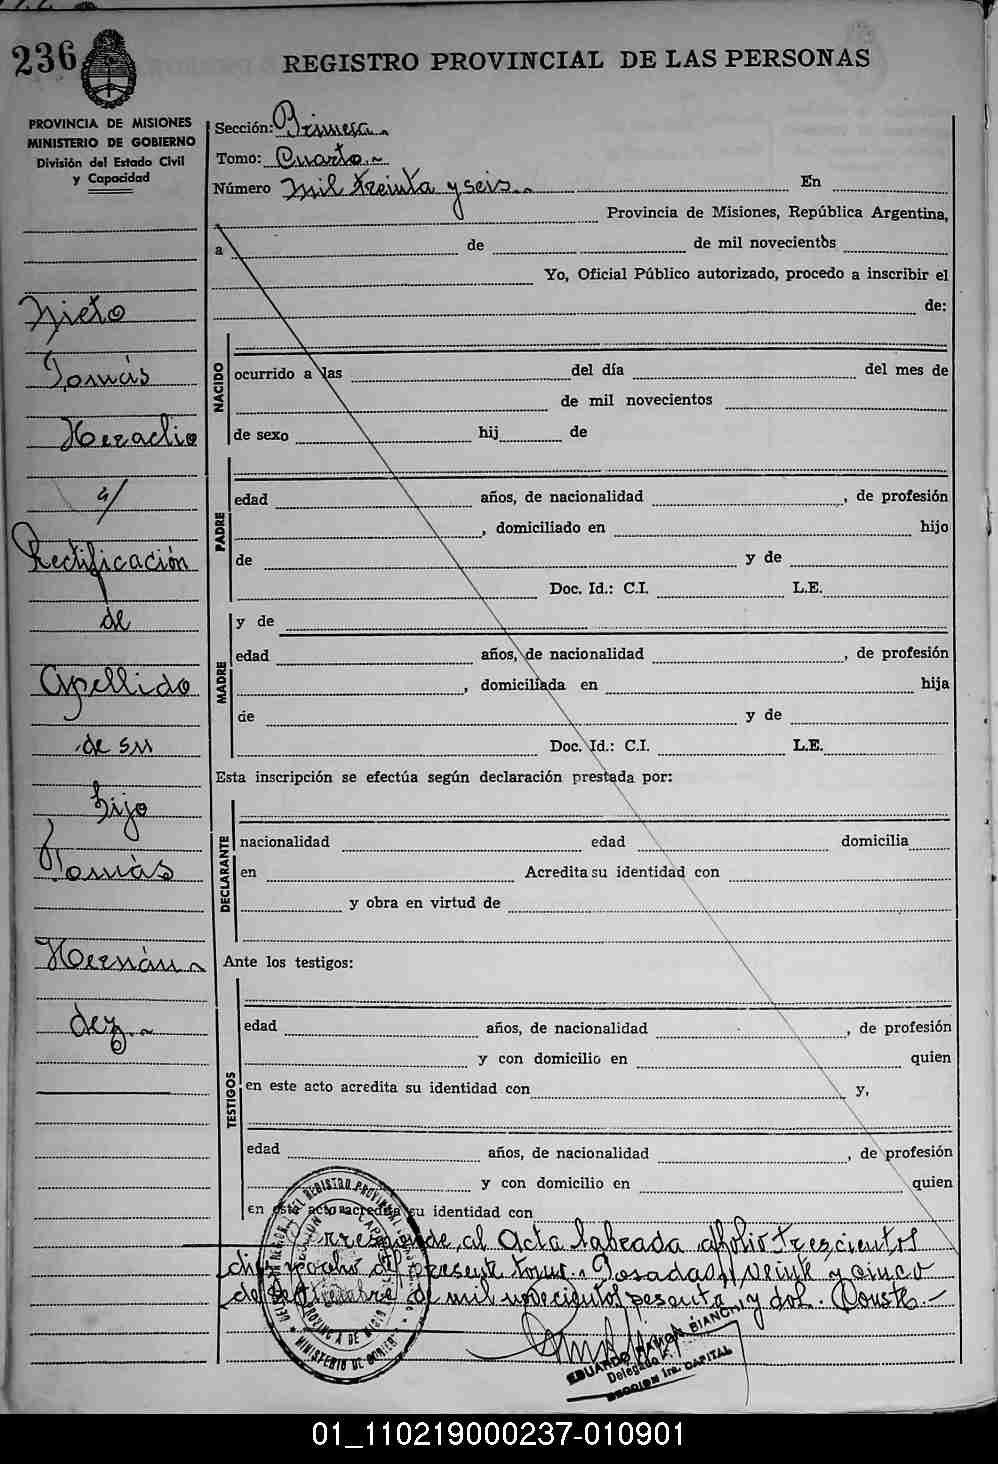 236
REGISTRO PROVINCIAL DE LAS PERSONAS
PROVINCIA DE MISIONES
MINISTERIO DE GOBIERNO
División del Estado Civil
y Capacidad
Nieto
Tomás
Heraclio
s/
Rectificación
de
Apellido
de su
hijo
Tomás
Hernán
dez.
Sección: Primera
Tomo: Cuarto
Número mil treinta y seis En
Provincia de Misiones, República Argentina,
a de de mil novecientos
Yo, Oficial Público autorizado, procedo a inscribir el
de:
NACIDO
ocurrido a las del día del mes de
de mil novecientos
de sexo hij de
PADRE
edad años, de nacionalidad , de profesión
, domiciliado en hijo
de y de
Doc. Id.: C.I. L.E.
MADRE
y de
edad años, de nacionalidad , de profesión
, domiciliada en hija
de y de
Doc. Id.: C.I. L.E.
Esta inscripción se efectúa según declaración prestada por:
DECLARANTE
nacionalidad edad domicilia
en Acredita su identidad con
y obra en virtud de
Ante los testigos:
TESTIGOS
edad años, de nacionalidad , de profesión
y con domicilio en quien
en este acto acredita su identidad con y,
edad años, de nacionalidad , de profesión
y con domicilio en quien
en este acto acredita su identidad con
Corresponde al Acta labrada al folio trescientos
diez y ocho del presente tomo. Posadas, veinte y cinco
de Septiembre de mil novecientos sesenta y dos. Conste.-
EDUARDO RAMON BIANCHI
Delegado
SECCION 1ra. CAPITAL
MINISTERIO DE GOBIERNO
01_110219000237-010901